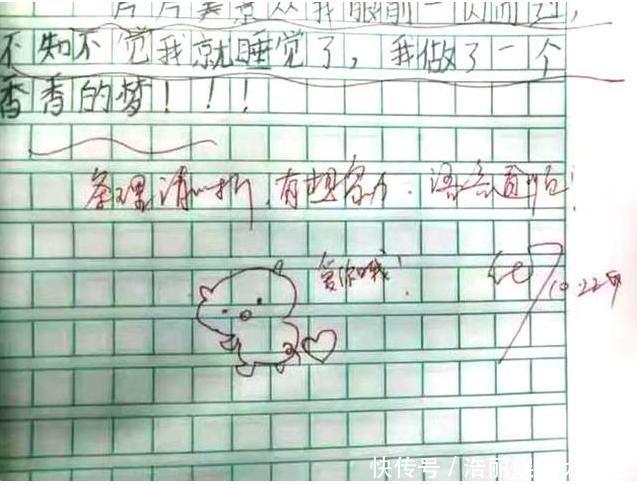 片片美景从我眼前一闪而过,
不知不觉我就睡觉了,我做了一个
香香的梦!!!
条理清晰,有想象力.语言通顺!
爱你哦!
优
10.22
快传号/浩丽